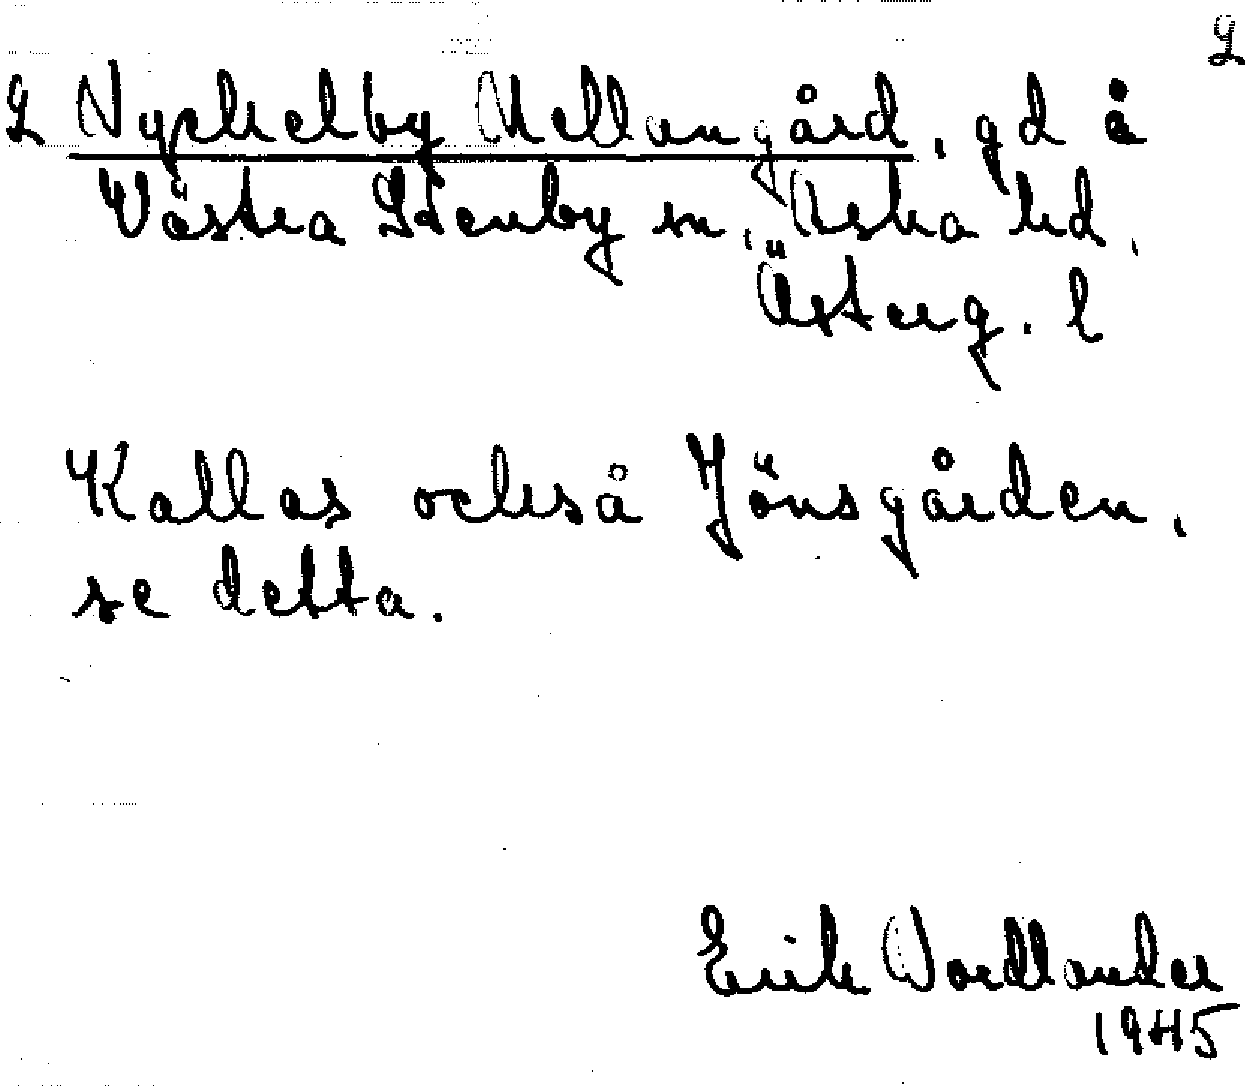 L
L Nyckelby Mellangård, gd å
Västra Stenby sn, Aska hd,
Österg. l
Kallas också Jönsgården,
se detta.
Erik Nordlander
1945